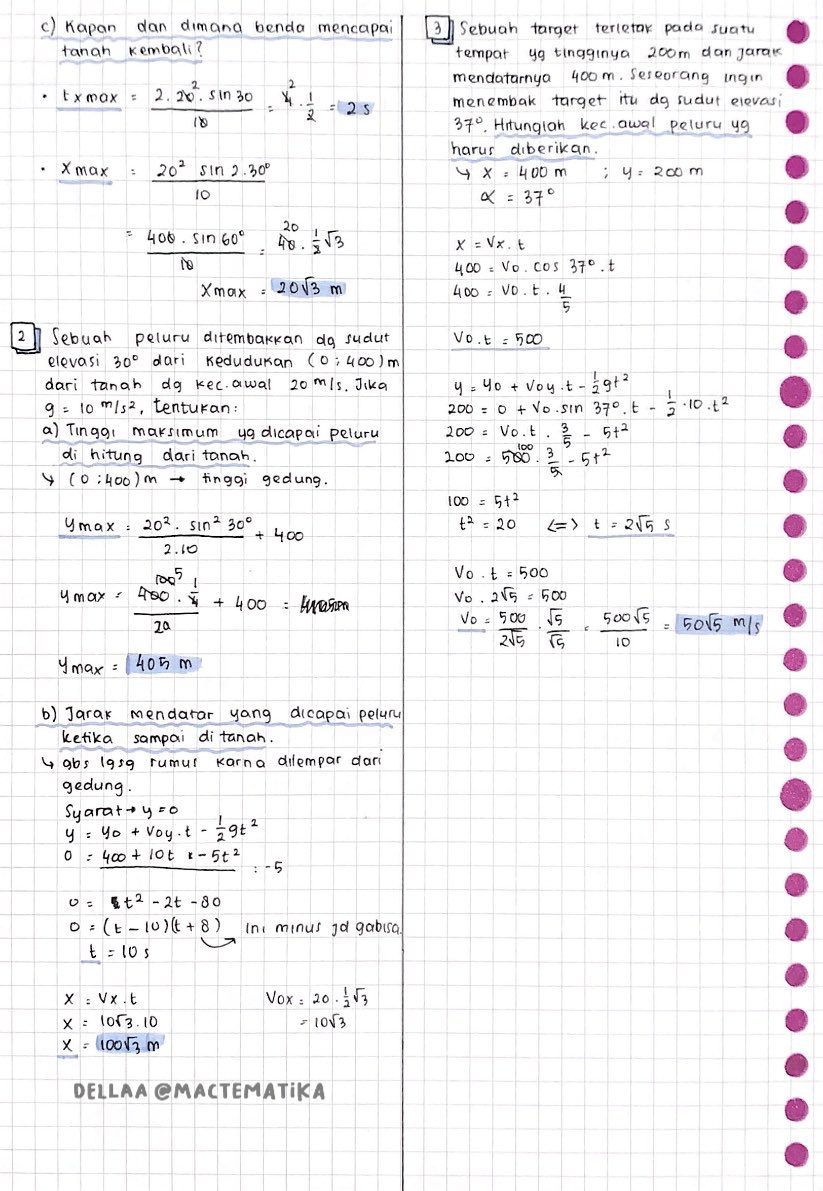 c) Kapan dan dimana benda mencapai
tanah kembali?
• t x max = 2.20². sin 30 / 10 = 4 . 1/2 = 2 s
• Xmax : 20² sin 2.30° / 10
= 400 . sin 60° / 10 = 40 . 1/2 √3
Xmax = 20√3 m
2 Sebuah peluru ditembakkan dg sudut
elevasi 30° dari kedudukan (0;400)m
dari tanah dg kec. awal 20 m/s. Jika
g = 10 m/s², tentukan:
a) Tinggi maksimum yg dicapai peluru
di hitung dari tanah.
↳ (0;400)m → tinggi gedung.
Ymax = 20² . sin² 30° / 2.10 + 400
Ymax = 400 . 1/4 / 20 + 400 =
Ymax = 405 m
b) Jarak mendatar yang dicapai peluru
ketika sampai di tanah.
↳ gbs lgsg rumus karna dilempar dari
gedung.
Syarat → y = 0
y = yo + Voy.t - 1/2 gt²
0 = 400 + 10t - 5t² : -5
0 = t² - 2t - 80
0 = (t - 10)(t + 8) ini minus jd gabisa.
t = 10 s
X = Vx.t
X = 10√3.10
X = 100√3 m
Vox = 20 . 1/2 √3
= 10√3
DELLAA @MACTEMATiKA
3 Sebuah target terletak pada suatu
tempat yg tingginya 200m dan jarak
mendatarnya 400 m. Seseorang ingin
menembak target itu dg sudut elevasi
37°. Hitunglah kec. awal peluru yg
harus diberikan.
↳ X = 400 m ; y = 200 m
α = 37°
X = Vx . t
400 = Vo . cos 37° . t
400 = Vo . t . 4/5
Vo . t = 500
y = yo + Voy . t - 1/2 gt²
200 = 0 + Vo . sin 37° . t - 1/2 . 10 . t²
200 = Vo . t . 3/5 - 5t²
200 = 500 . 3/5 - 5t²
100 = 5t²
t² = 20 <=> t = 2√5 s
Vo . t = 500
Vo . 2√5 = 500
Vo = 500 / 2√5 . √5 / √5 = 500√5 / 10 = 50√5 m/s